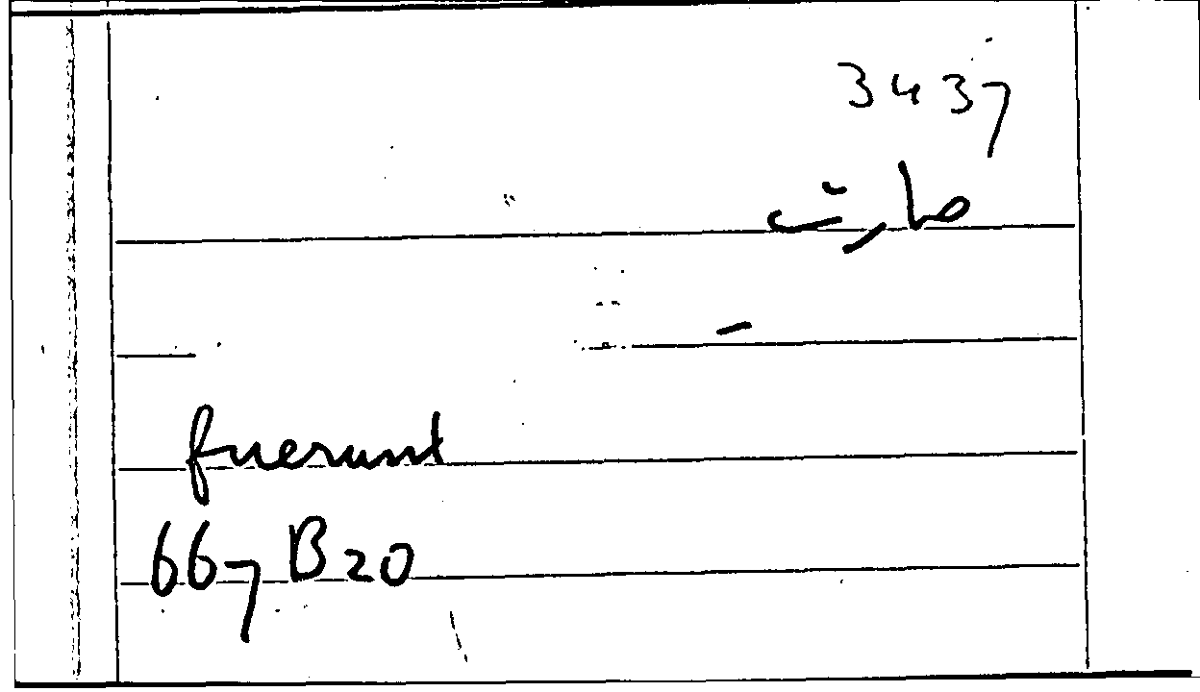 3437
صارت
fuerunt
667 B20